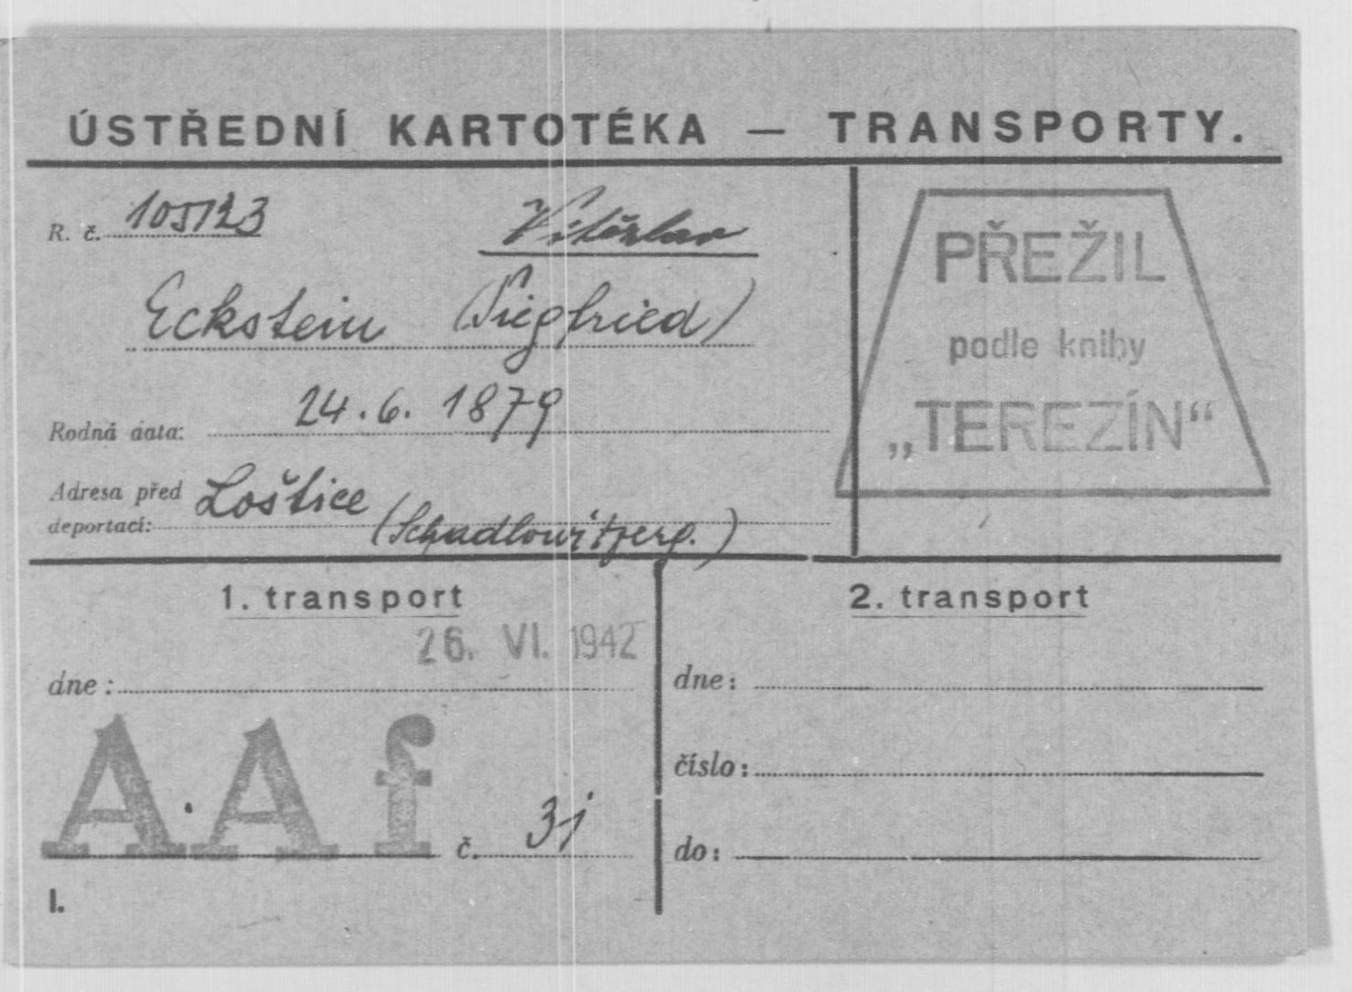 ÚSTŘEDNÍ KARTOTÉKA — TRANSPORTY.
R. č. 105123
Vítězslav
Eckstein (Siegfried)
Rodná data: 24.6. 1879
Adresa před deportací: Loštice
PŘEŽIL
podle knihy
„TEREZÍN“
1. transport
26. VI. 1942
dne:
AAf
č. 31
I.
2. transport
dne:
číslo:
do: